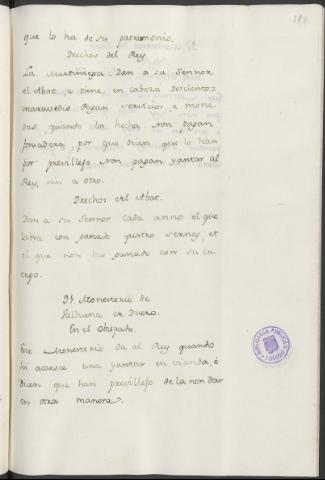 que lo ha de su patrimonio.
Drechos del Rey.
La Martiniega dan a su Sennor
el Abat, e tiene en cabeza docientos
maravedis. Pagan servicios, e mone
das, quando las hecha. Non pagan
fonsadera, por que dicen, que lo han
por previllejo. Non pagan yantar al
Rey, nin a otro.
Drechos del Abat.
Dan a su Sennor cada anno el que
labra con panado quatro sernas, et
el que non ha panado con su cu
erpo.
Monesterio de
Valbuena de Duero.
En el Obispado.
Este Monesterio da al Rey quando
hi acaesce una yantar en vianda, é
dicen que han previllejo de la non dar
en otra manera.
BIBLIOTECA PUBLICA
TOLEDO